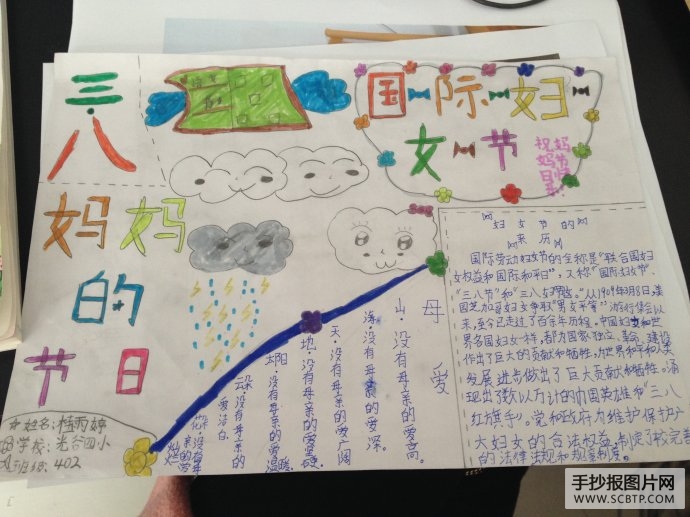 三·八
妈妈
的
节日
国际妇
女节
祝妈妈
节日
妇女节的
来历
国际劳动妇女节的全称是“联合国妇
女权益和国际和平日”，又称“国际妇女节”、
“三八节”和“三八妇女节”。从1909年3月8日，美
国芝加哥妇女争取“男女平等”游行集会以
来，至今已走过了百余年历程。中国妇女和世
界各国妇女一样，都为国家独立、革命、建设
作出了巨大的贡献和牺牲，为世界和平和人类
发展进步做出了巨大贡献和牺牲。涌
现出了数以万计的巾国英雄和“三八
红旗手”。党和政府为维护保护广
大妇女的合法权益，制定了较完善
的法律法规和规章制度。
母爱
山，没有母亲的爱高。
海，没有母亲的爱深。
天，没有母亲的爱广阔
地，没有母亲的爱宽硬
太阳，没有母亲的爱温暖
云朵，没有母亲的
爱洁白
花朵，没有母
亲的爱
灿烂
姓名：桂雨婷
学校：光谷四小
班级：402
手抄报图片网
WWW.SCBTP.COM